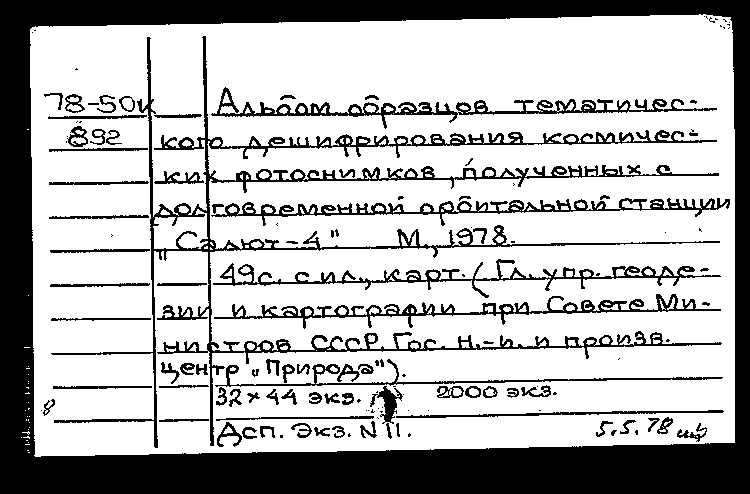 78-50к Альбом образцов тематичес-
892 кого дешифрирования космичес-
ких фотоснимков, полученных с
долговременной орбитальной станции
„Салют-4" М., 1978.
49с. с ил., карт. (Гл. упр. геоде-
зии и картографии при Совете Ми-
нистров СССР. Гос. н.-и. и произв.
центр „Природа").
32×44 экз. 2000 экз.
8
Дсп. Экз. N 11. 5.5.78